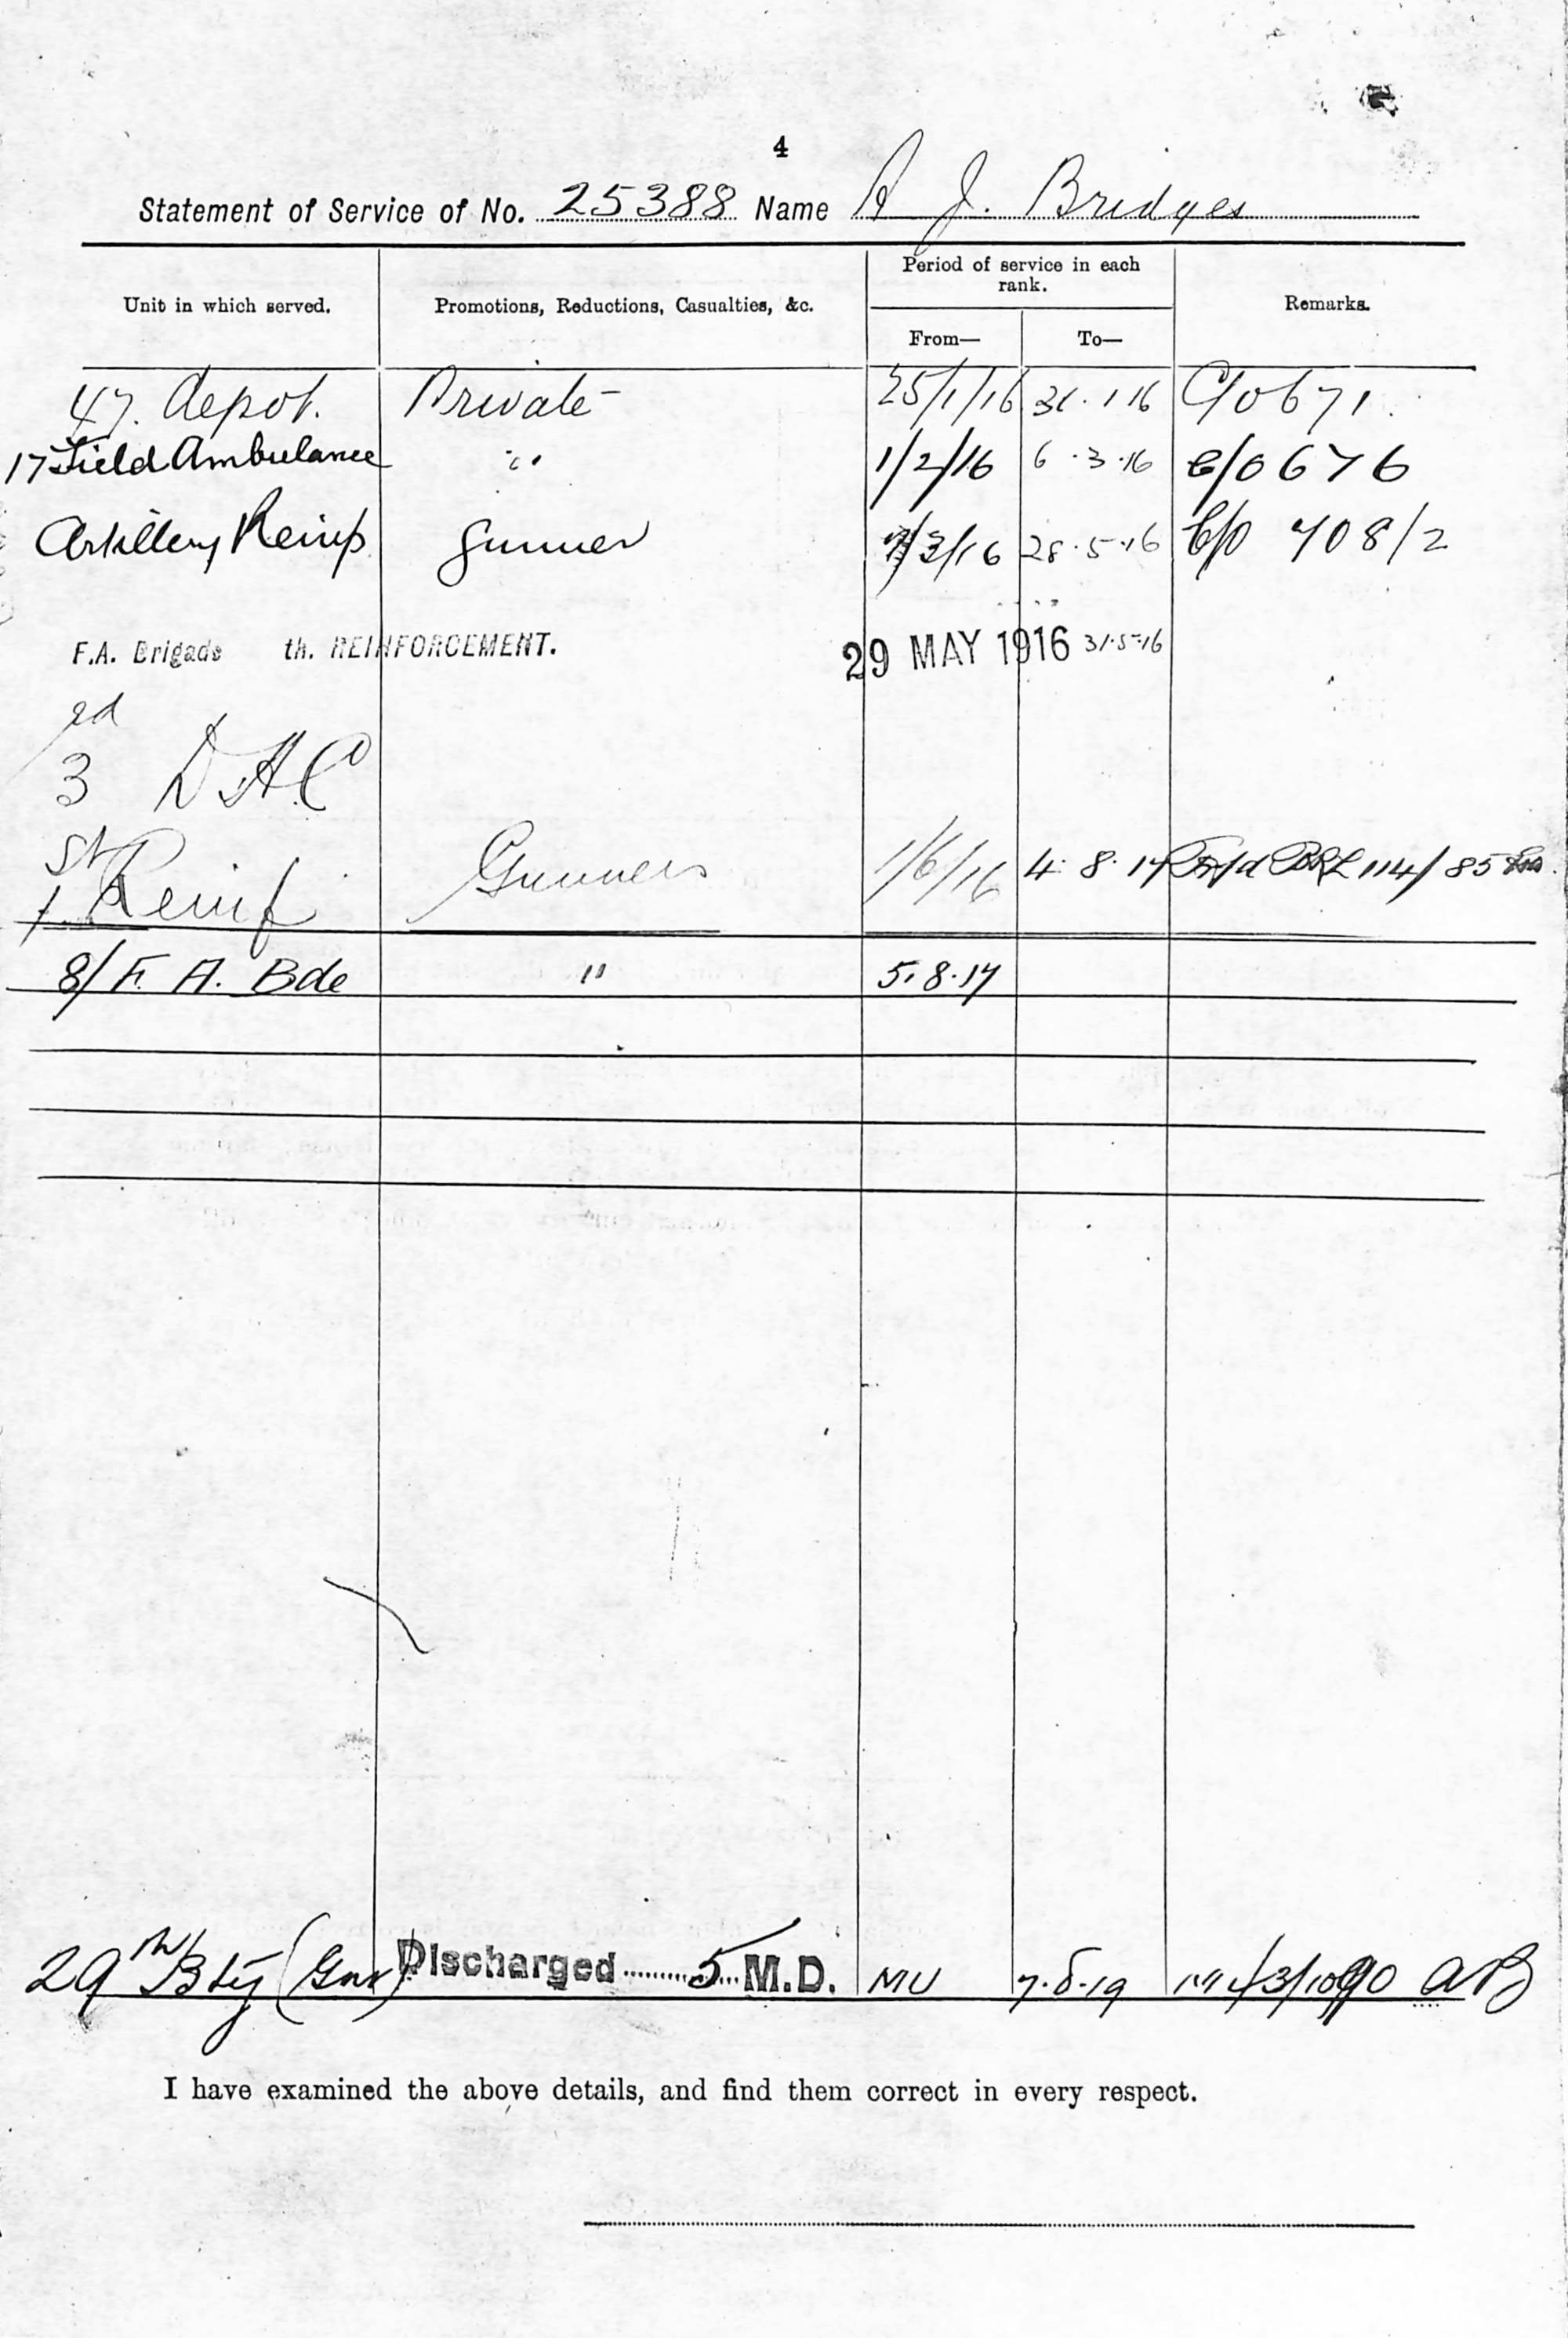 4
Statement of Service of No. 25388 Name A J. Bridges
Unit in which served. Promotions, Reductions, Casualties, &c. Period of service in each rank. From— To— Remarks.
47. depot. Private 25/1/16 31.1.16 C/o 671.
17 Field Ambulance " 1/2/16 6.3.16 C/o 676
Artillery Reinfs Gunner 7/3/16 28.5.16 C/o 408/2
F.A. Brigade th. REINFORCEMENT. 29 MAY 1916 31.5.16
3rd D.A.C
1st Reinf Gunner 1/6/16 4.8.17 114/85
8/F. A. Bde " 5.8.17
29th Bty (Gnr) Discharged 5 M.D. MU 7.8.19
I have examined the above details, and find them correct in every respect.